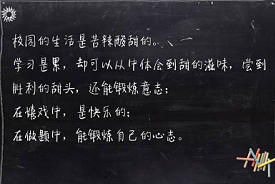 校园的生活是苦辣酸甜的。
学习是累，却可以从中体会到甜的滋味，尝到
胜利的甜头，还能锻炼意志；
在嬉戏中，是快乐的；
在做题中，能锻炼自己的心志。